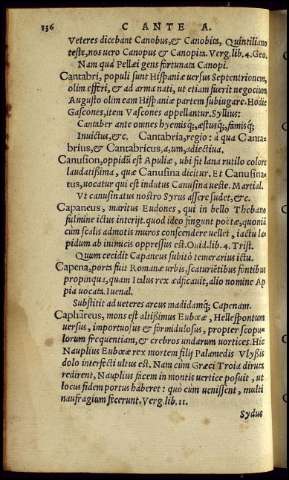 136 CANTE A.
Veteres dicebant Canobus, & Canobita, Quintiliano
teste, nos uero Canopus & Canopita. Verg. lib. 4. Geo.
Nam qua Pellæi gens fortunata Canopi.
Cantabri, populi sunt Hispaniæ uersus Septentrionem,
olim efferi, & ad arma nati, ut etiam fuerit negocium
Augusto olim eam Hispaniæ partem subiugare. Hodie
Gascones, item Vascones appellantur. Syllius:
Cantaber ante omnes hyemisq́;, æstusq́;, famisq́;
Inuictus, &c. Cantabria, regio: à qua Canta-
brius, & Cantabricus, a, um, adiectiua.
Canusion, oppidū est Apuliæ, ubi fit lana rutilo colore
laudatissima, quæ Canusina dicitur. Et Canusina-
tus, uocatur qui est indutus Canusina ueste. Martial.
Vt canusinatus nostro Syrus assere sudet, &c.
Capaneus, maritus Euadnes, qui in bello Thebano
fulmine ictus interijt. quod ideo fingunt poëtæ, quòd
cum scalis admotis muros conscendere uellet, iactu la-
pidum ab inimicis oppressus est. Ouid. lib. 4. Trist.
Quum cecidit Capaneus subitò temerarius ictu.
Capena, porta fuit Romanæ urbis, scaturiētibus fontibus
propinqua, quam Italus rex ædificauit, alio nomine Ap
pia uocata. Iuuenal.
Substitit ad ueteres arcus madidamq́; Capenam.
Caphareus, mons est altissimus Eubœæ, Hellespontum
uersus, importuosus & formidulosus, propter scopu-
lorum frequentiam, & crebros undarum uortices. Hic
Nauplius Eubœæ rex mortem filij Palamedis Vlyssis
dolo interfecti ultus est. Nam cùm Græci Troia diruta
redirent, Nauplius facem in montis uertice posuit, ut
locus fidem portus haberet: quò cum uenissent, multi
naufragium fecerunt. Verg. lib. 11.
Sydus